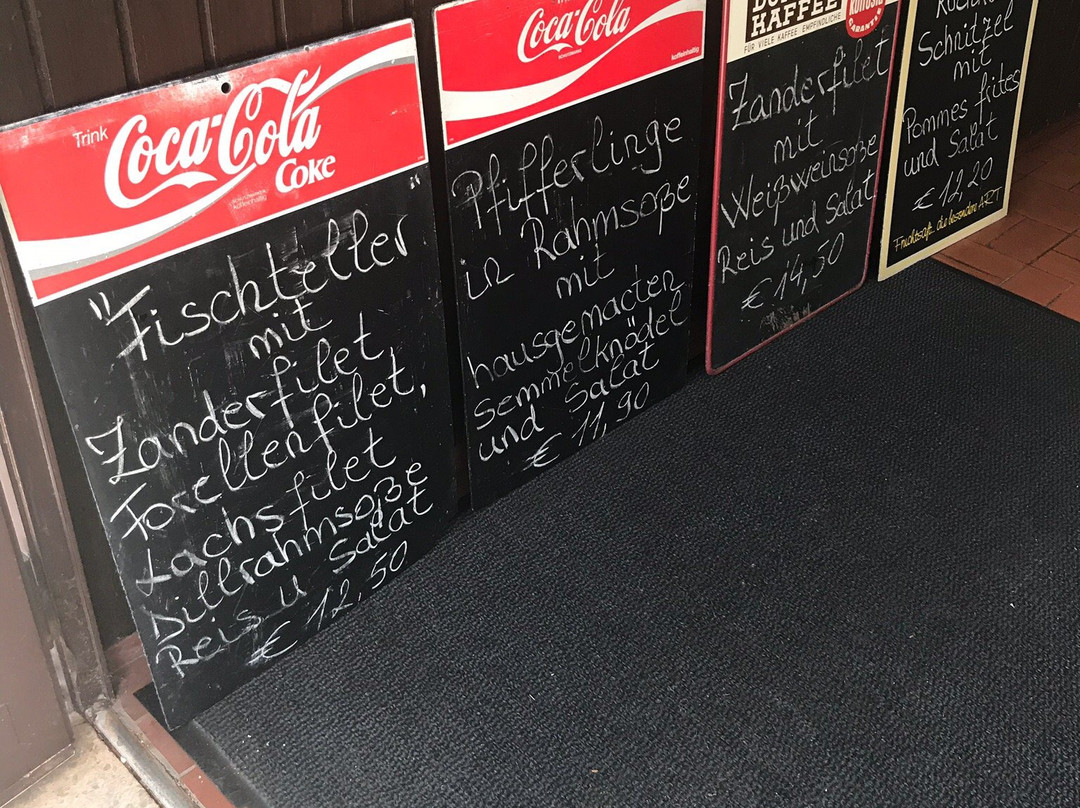 Trink
Coca-Cola
Coke
koffeinhaltig
"Fischteller"
mit
Zanderfilet,
Forellenfilet,
Lachsfilet
Dillrahmsoße
Reis u Salat
€ 12,50
Coca-Cola
koffeinhaltig
Pfifferlinge
in Rahmsoße
mit
hausgemacten
Semmelknödel
und Salat
€ 11,90
KAFFEE
FÜR VIELE KAFFEE EMPFINDLICHE
GARANTIE
Zanderfilet
mit
Weißweinsoße
Reis und Salat
€ 14,50
Schnitzel
mit
Pommes frites
und Salat
€ 12,20
Fruchtsäfte, die besondere ART